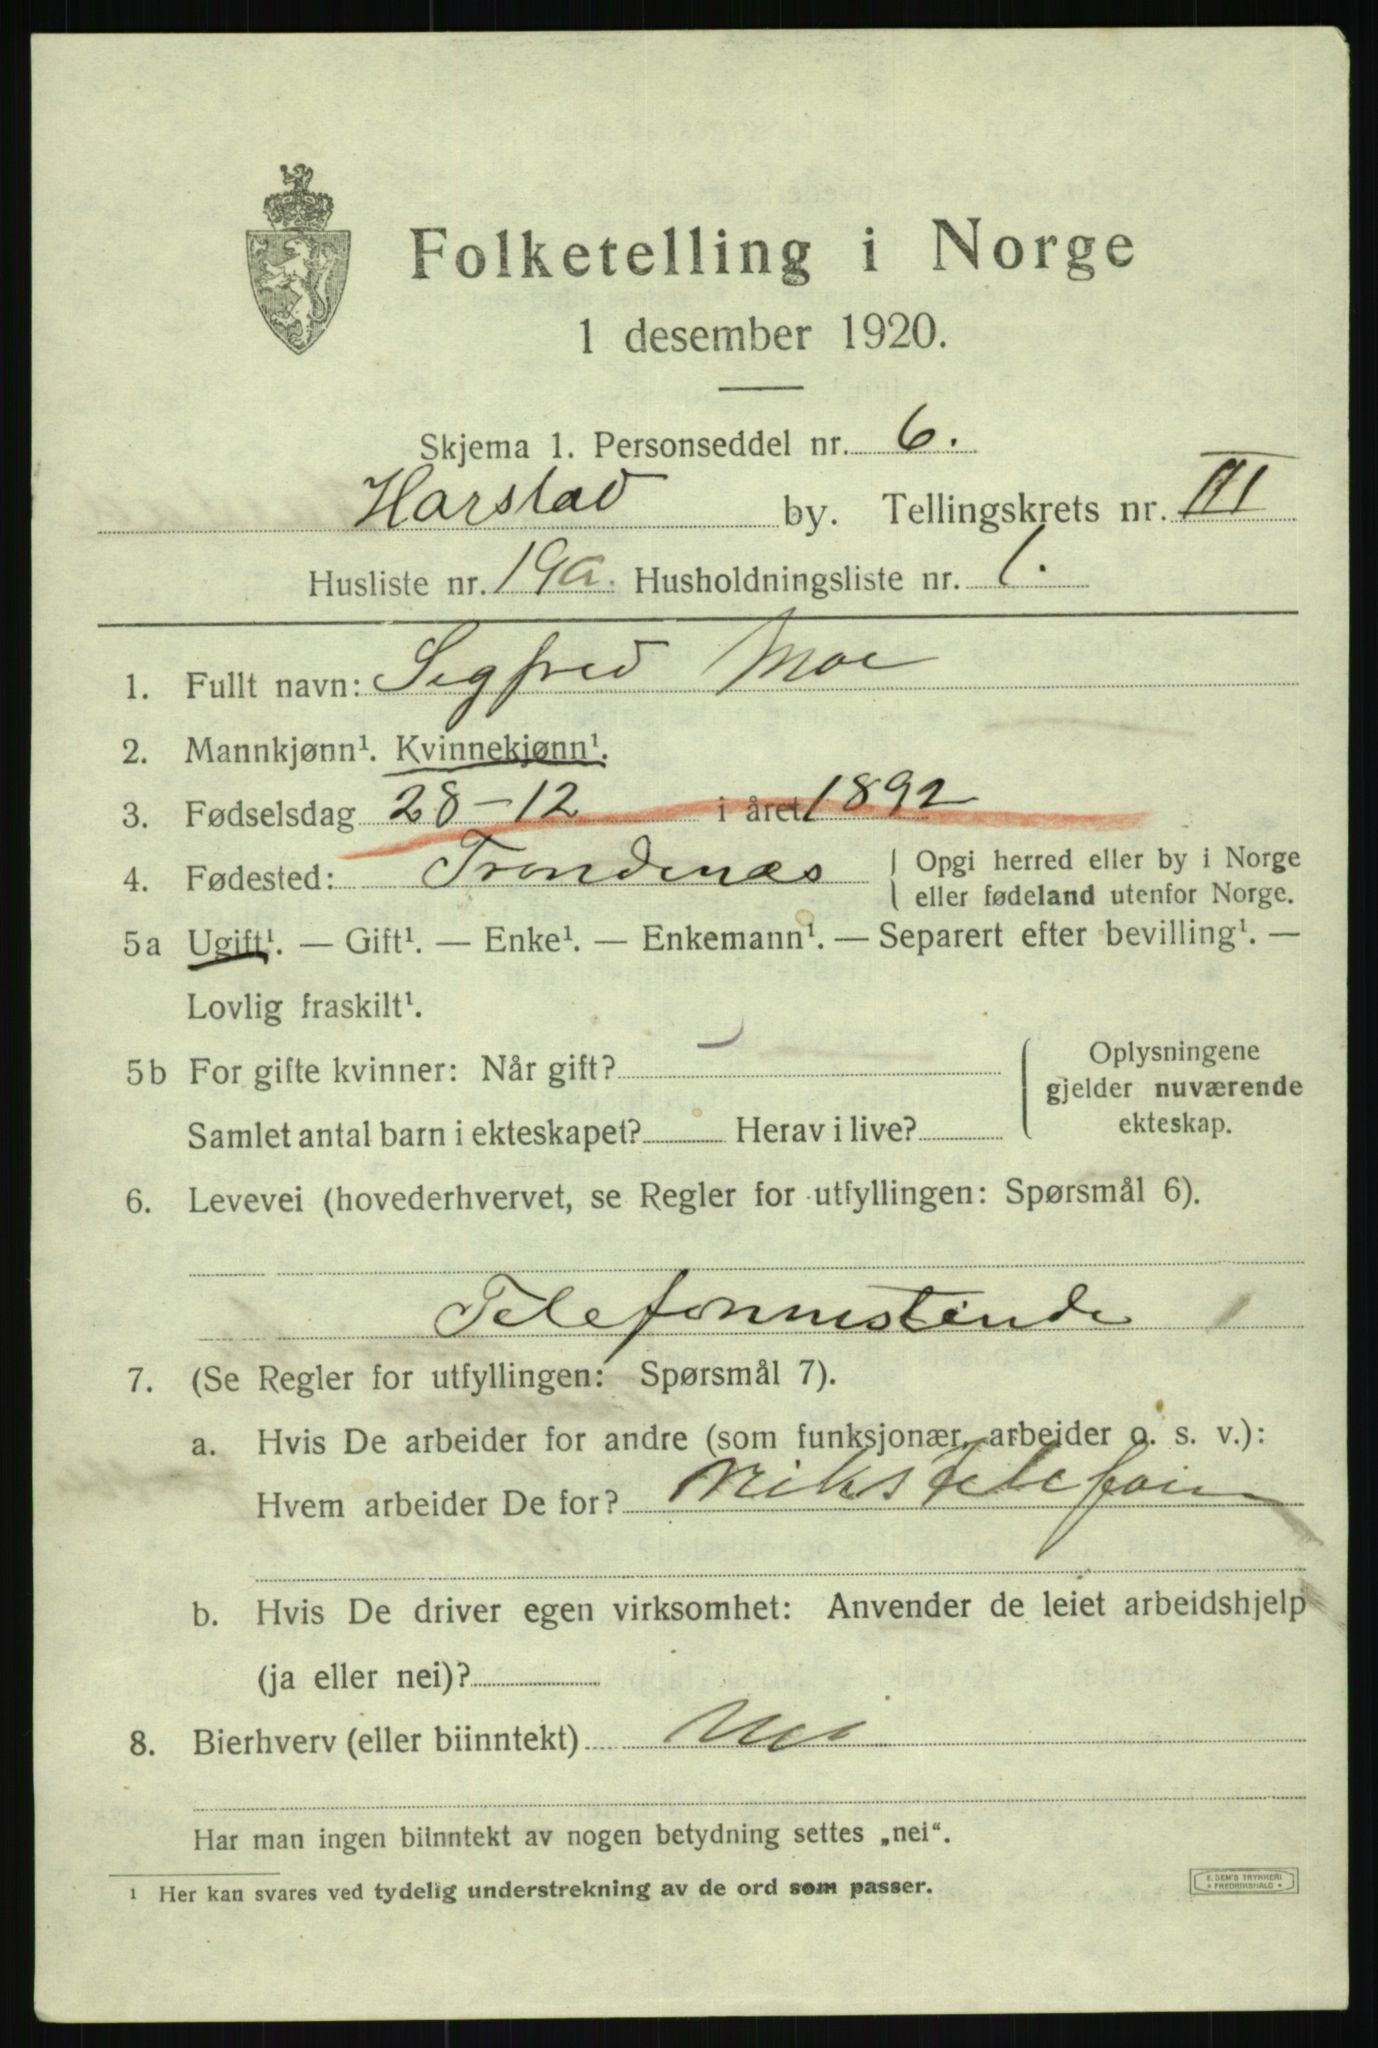 Folketelling i Norge
1 desember 1920.
Skjema 1. Personseddel nr. 6.
Harstad by. Tellingskrets nr. III
Husliste nr. 19a. Husholdningsliste nr. 1.
1. Fullt navn: Sigfred Moe
2. Mannkjønn¹. Kvinnekjønn¹.
3. Fødselsdag 28-12 i året 1892
4. Fødested: Trondenæs { Opgi herred eller by i Norge
eller fødeland utenfor Norge.
5a Ugift¹. — Gift¹. — Enke¹. — Enkemann¹. — Separert efter bevilling¹. —
Lovlig fraskilt¹.
5b For gifte kvinner: Når gift?
Samlet antal barn i ekteskapet? Herav i live?
Oplysningene
gjelder nuværende
ekteskap.
6. Levevei (hovederhvervet, se Regler for utfyllingen: Spørsmål 6).
7. (Se Regler for utfyllingen: Spørsmål 7).
a. Hvis De arbeider for andre (som funksjonær, arbeider o. s. v.):
Hvem arbeider De for?
b. Hvis De driver egen virksomhet: Anvender de leiet arbeidshjelp
(ja eller nei)?
8. Bierhverv (eller biinntekt) Nei
Har man ingen biinntekt av nogen betydning settes „nei“.
¹ Her kan svares ved tydelig understrekning av de ord som passer.
E. SEM'S TRYKKERI
* FREDRIKSHALD *